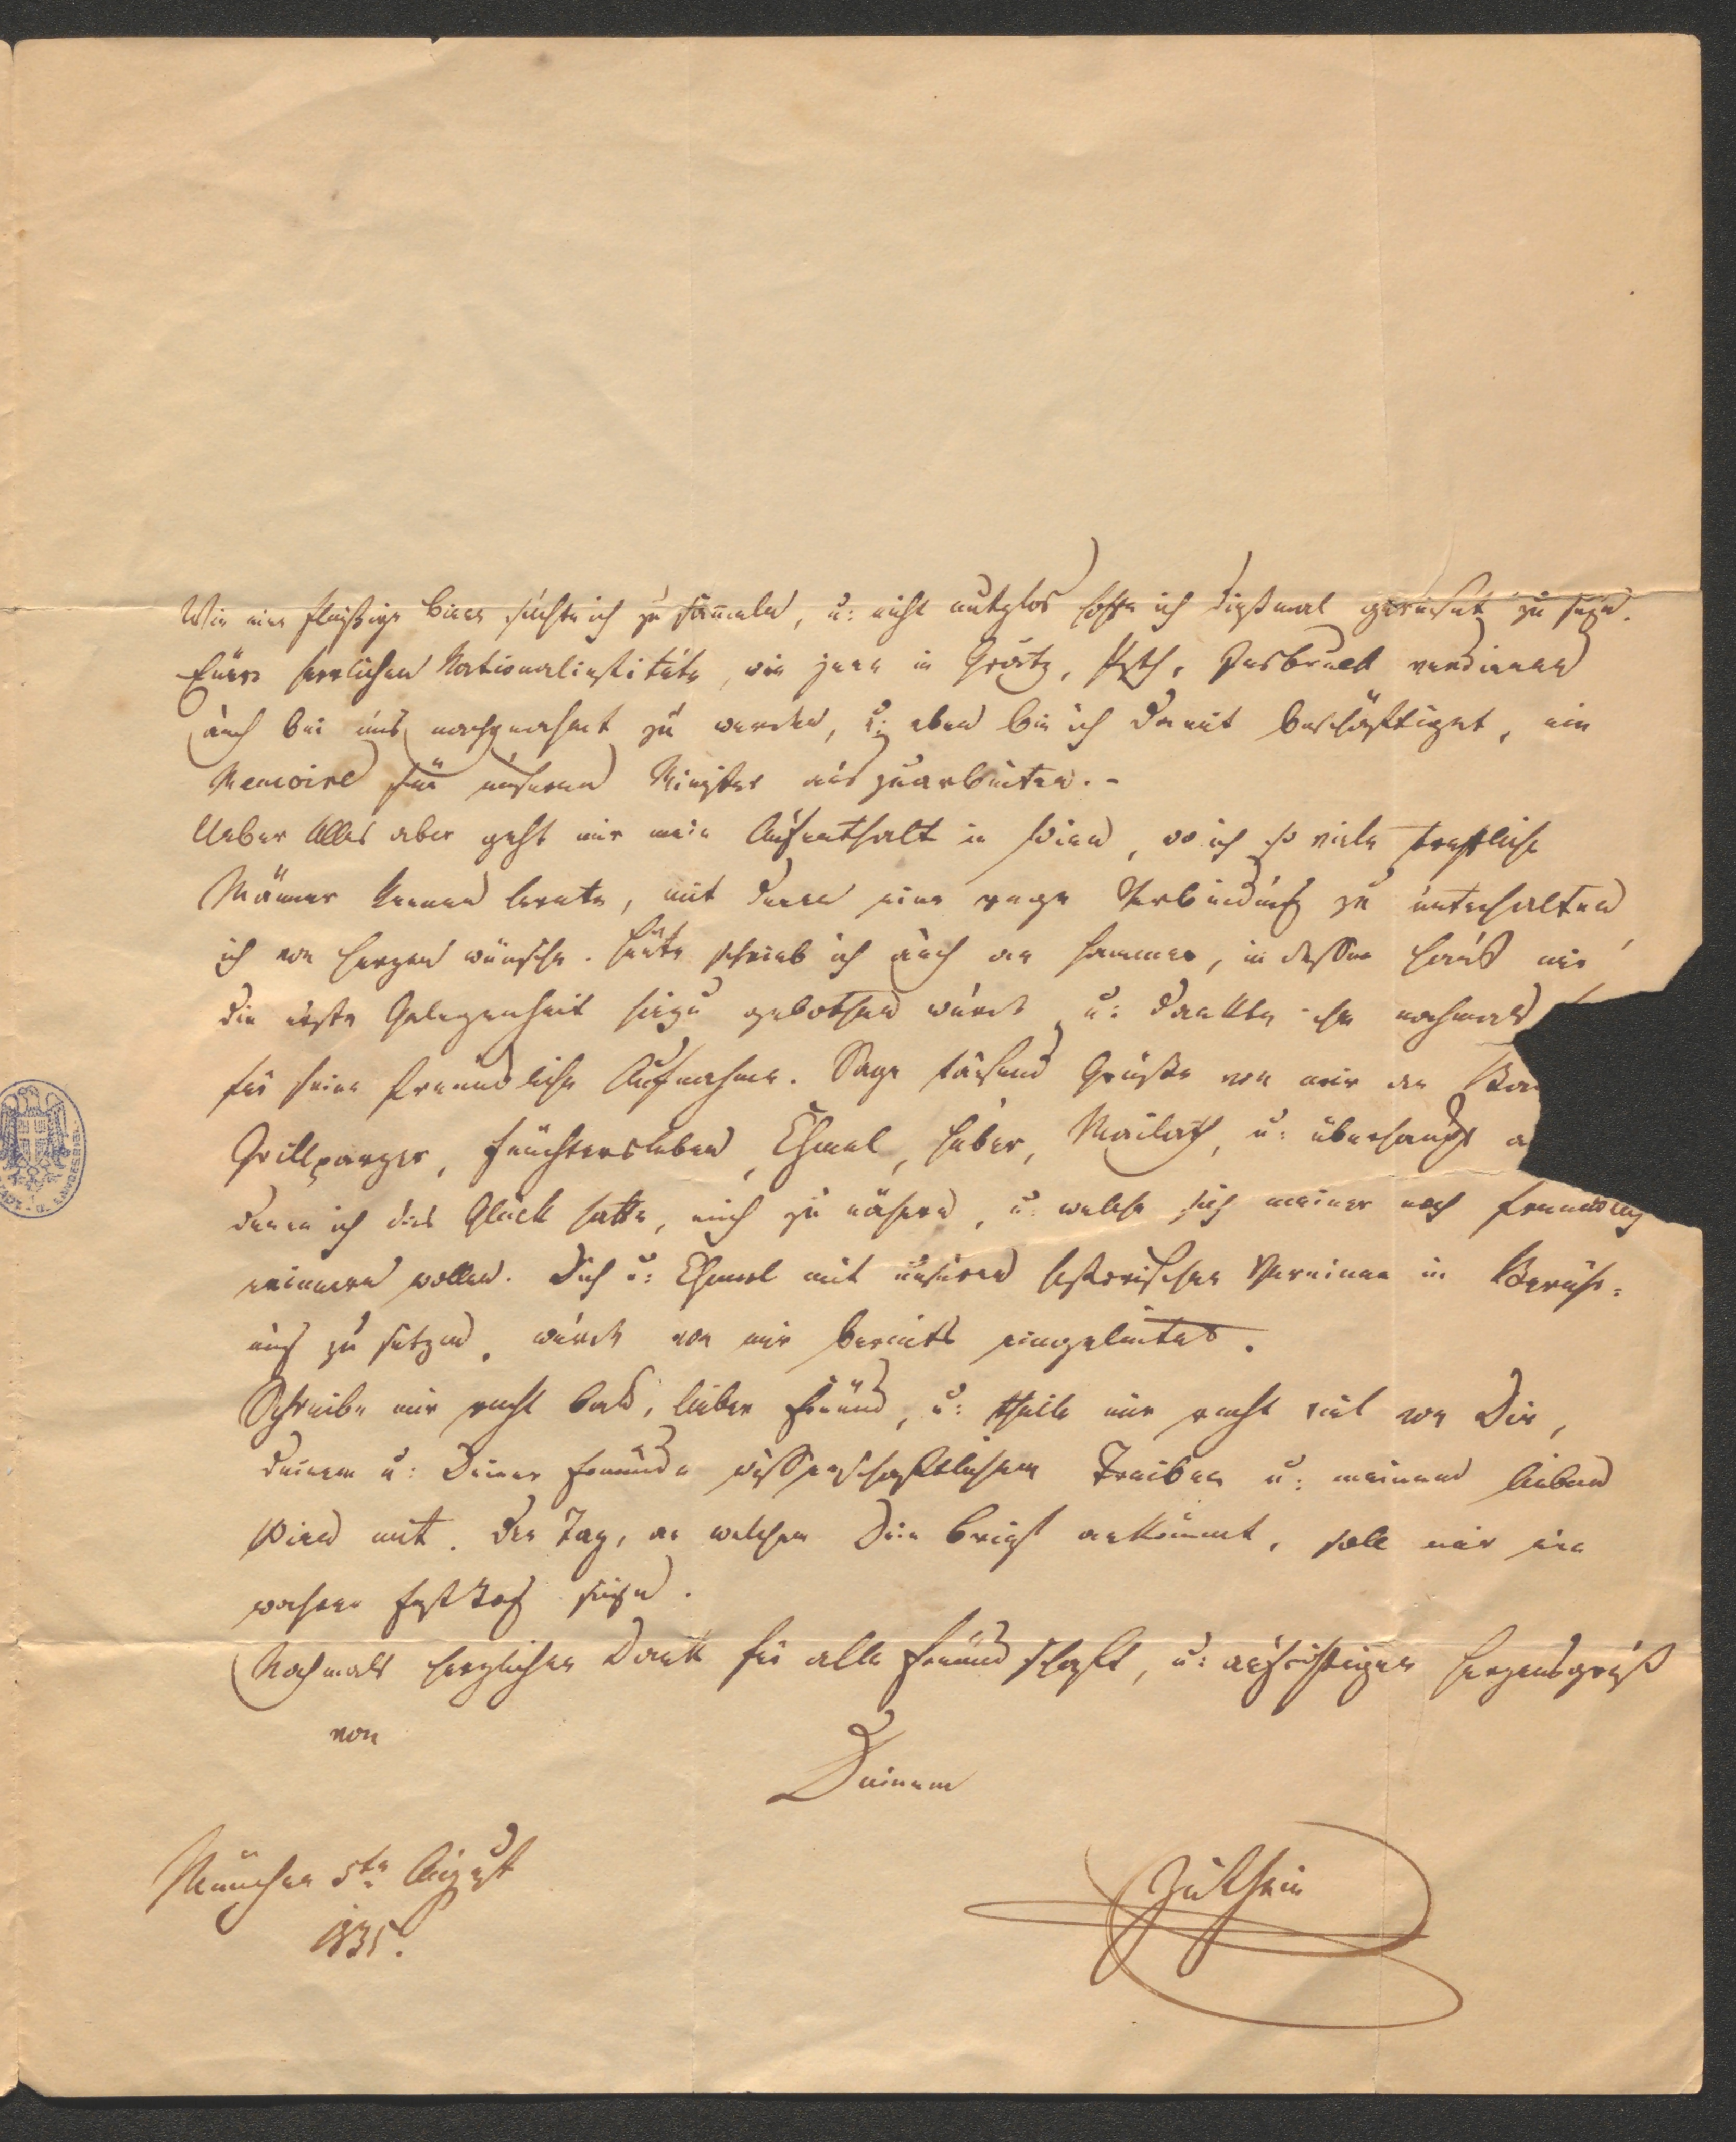 Wie eine fleißige Biene suchte ich zu sammeln, u: nicht nutzlos hoffe ich dießmal gereiset zu seyn.
Eure herrlichen Nationalinstitute, wie jene in Grätz, Pesth, Insbruck verdienen
auch bei uns nachgeahmt zu werden, u: eben bin ich damit beschäftiget, ein
Memoire für unseren Minister auszuarbeiten. -
Ueber Alles aber geht mir mein Aufenthalt in Wien, wo ich so viele treffliche
Männer kennen lernte, mit denen eine rege Verbindung zu unterhalten
ich von Herzen wünsche. Heute schrieb ich auch an Hammer, in dessen Haus mir
die erste Gelegenheit hiezu gebothen wurde, u: dankte ihm nochmals
für seine freundliche Aufnahme. Sage tausend Grüße von mir an
Grillparzer, Feuchtersleben, Chmel, Huber, Mailath, u: überhaupt
denen ich das Glück hatte, mich zu nähern, u: welche sich meiner noch freundlich
erinnern wollen. Dich u: Chmel mit unseren historischen Vereinen in Berüh=
ung zu setzen, wurde von mir bereits eingeleitet.
Schreibe mir recht bald, lieber Freund, u: theile mir recht viel von Dir,
Deinem u: Deiner Freunde wissenschaftlichem Treiben u: meinem lieben
Wien mit. Der Tag, an welchem Dein Brief ankömmt, soll mir ein
wahrer Festtag seyn.
Nochmals herzlichen Dank für alle Freundschaft, u: aufrichtigen Herzensgruß
von
Deinem
München 5te August
1835.